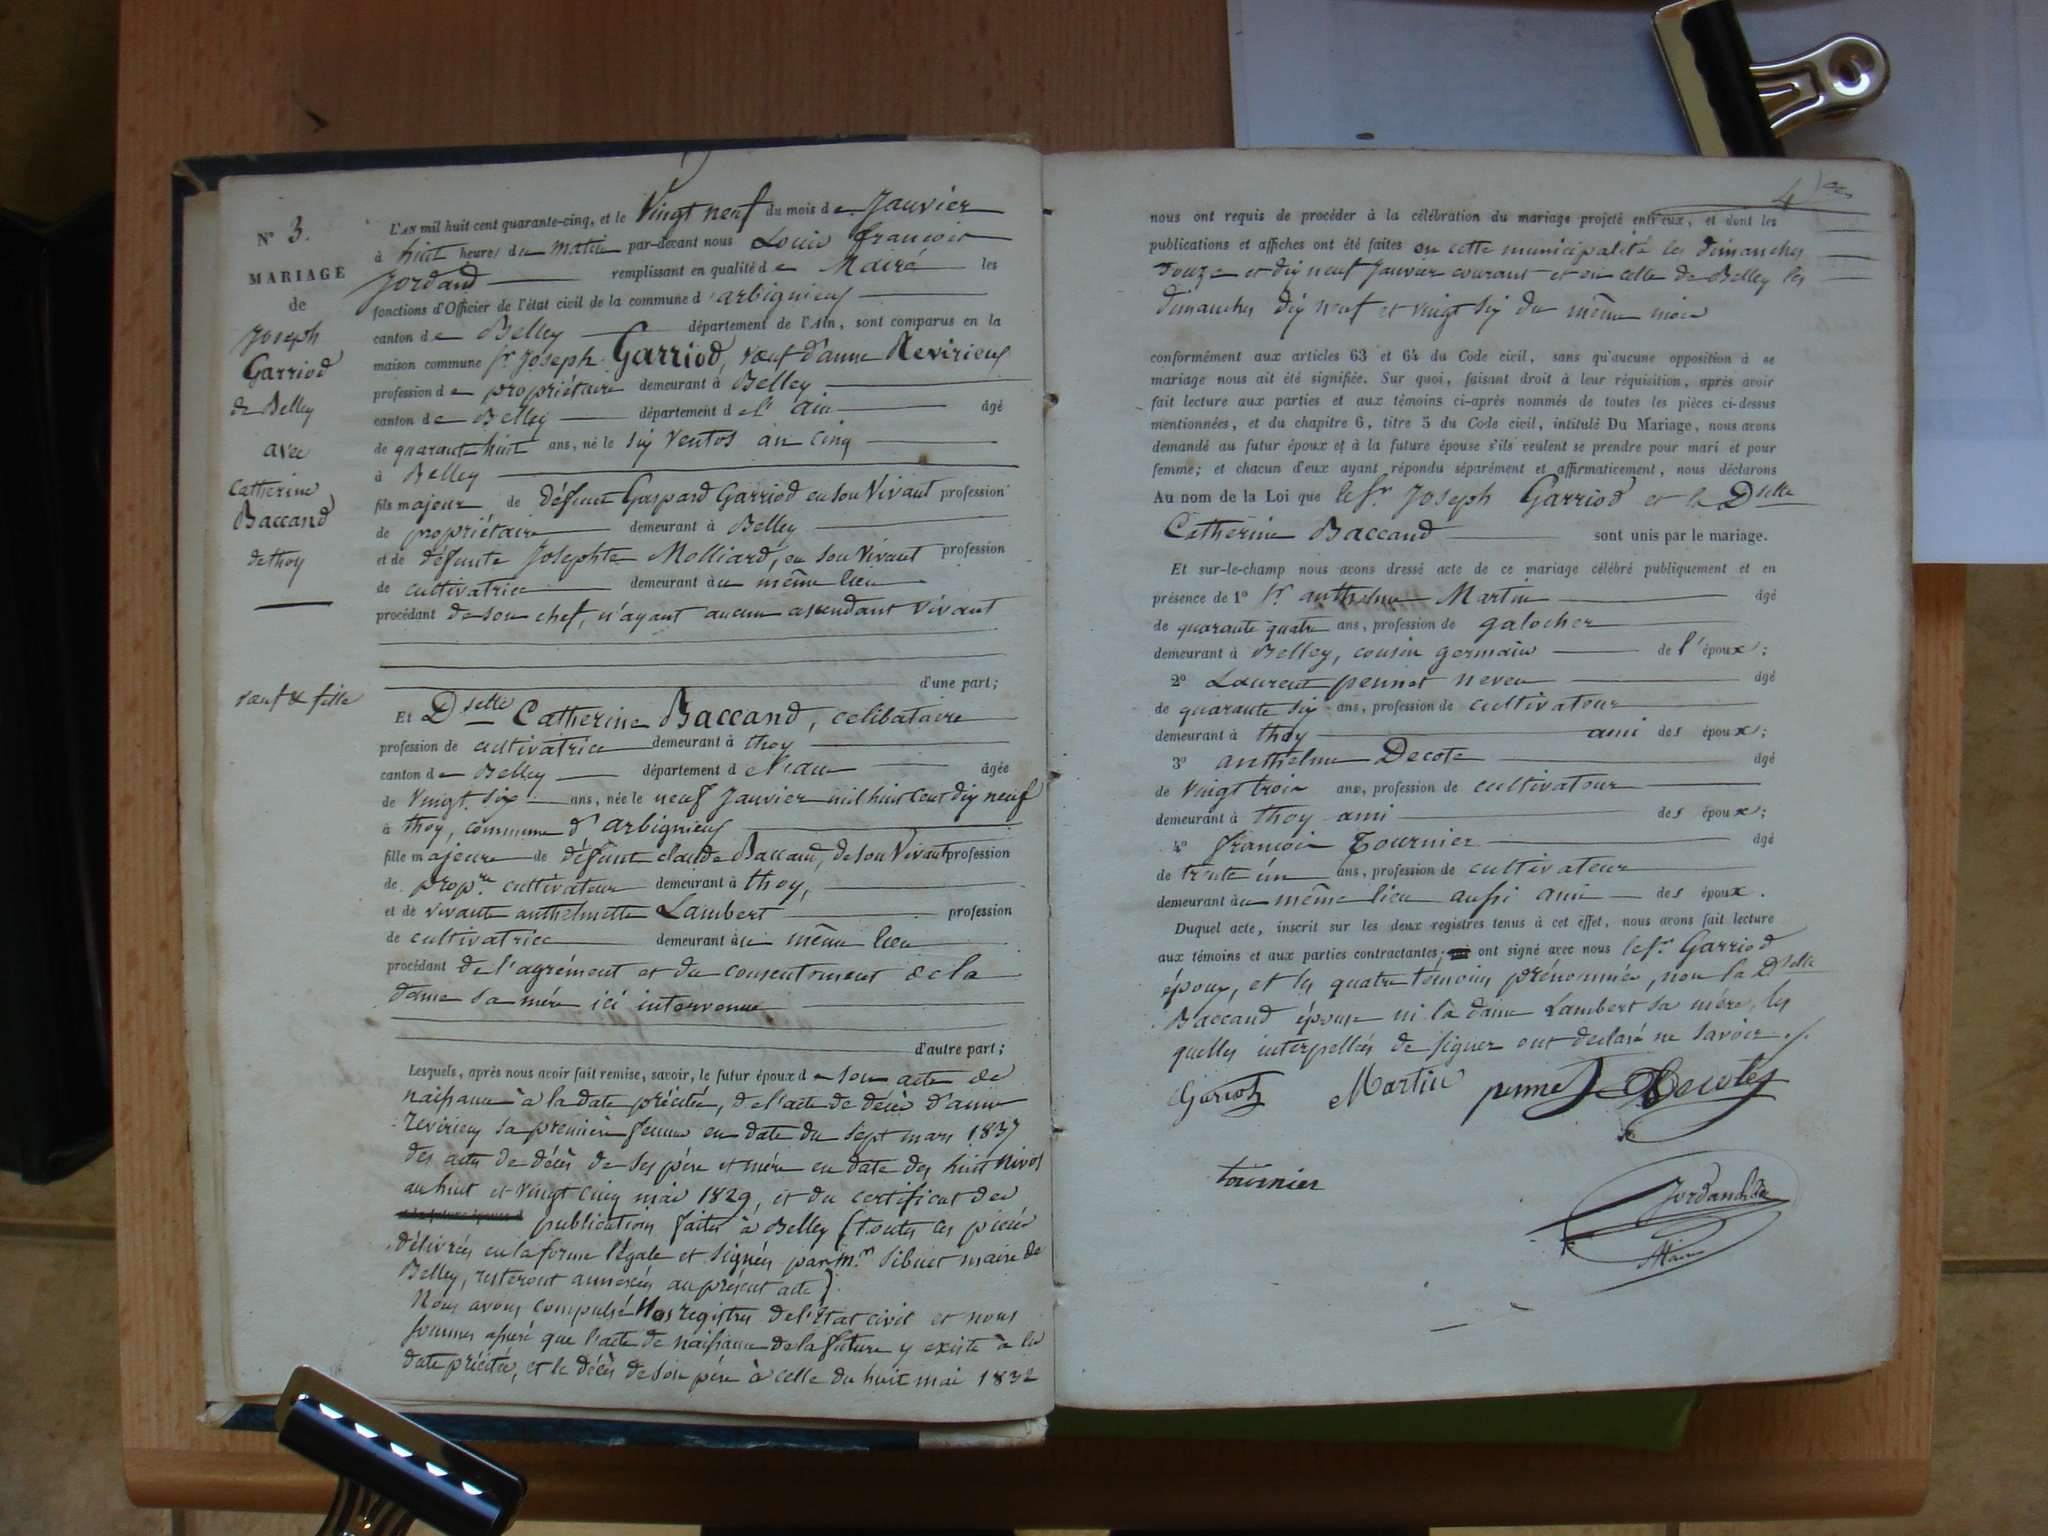 N° 3.
MARIAGE
de
Joseph
Garriod
de Belley
avec
Catherine
Baccand
de thoy
veuf & fille
L'AN mil huit cent quarante-cinq, et le Vingt neuf du mois de Janvier
à huit heures du matin par-devant nous Louis françois
Jordand remplissant en qualité de Maire les
fonctions d'Officier de l'état civil de la commune d'arbignieu
canton de Belley département de l'Ain, sont comparus en la
maison commune Sr Joseph Garriod, veuf d'anne Revirieux
profession de propriétaire demeurant à Belley
canton de Belley département de l'ain âgé
de quarante huit ans, né le six ventos an cinq
à Belley
fils majeur de défunt Gaspard Garriod en son vivant profession
de propriétaire demeurant à Belley
et de défunte Josephte Molliard, en son vivant profession
de cultivatrice demeurant au même lieu
procédant de son chef, n'ayant aucun ascendant vivant
d'une part;
Et Dselle Catherine Baccand, celibataire
profession de cultivatrice demeurant à thoy
canton de Belley département de l'ain âgée
de vingt six ans, née le neuf Janvier mil huit cent dix neuf
à thoy, commune d'arbignieu
fille majeure de défunt claude Baccand, de son Vivant profession
de propre cultivateur demeurant à thoy,
et de vivante anthelmette Lambert profession
de cultivatrice demeurant au même lieu
procédant de l'agrément et du consentement de la
dame sa mère ici intervenue
d'autre part;
Lesquels, après nous avoir fait remise, savoir, le futur époux de son acte de
naissance à la date précitée, de l'acte de décès d'anne
revirieux sa première femme en date du sept mars 1837
des actes de décès de ses père et mère en date des huit nivos
an huit et vingt cinq mai 1829, et du certificat des
publications faites à Belley (toutes ces pièces
délivrées en la forme légale et signées par Mr. Sibuet maire de
Belley, resteront annexées au présent acte)
Nous avons compulsé Nos registres de l'état civil et nous
sommes assuré que l'acte de naissance de la future y existe à la
date précitée, et le décès de son père à celle du huit mai 1832
4
nous ont requis de procéder à la célébration du mariage projeté entr'eux, et dont les
publications et affiches ont été faites en cette municipalité les dimanches
douze et dix neuf Janvier courant et en celle de Belley les
dimanches dix neuf et vingt six du même mois
conformément aux articles 63 et 64 du Code civil, sans qu'aucune opposition à ce
mariage nous ait été signifiée. Sur quoi, faisant droit à leur réquisition, après avoir
fait lecture aux parties et aux témoins ci-après nommés de toutes les pièces ci-dessus
mentionnées, et du chapitre 6, titre 5 du Code civil, intitulé Du Mariage, nous avons
demandé au futur époux et à la future épouse s'ils veulent se prendre pour mari et pour
femme; et chacun d'eux ayant répondu séparément et affirmativement, nous déclarons
Au nom de la Loi que le Sr Joseph Garriod et la Dselle
Catherine Baccand sont unis par le mariage.
Et sur-le-champ nous avons dressé acte de ce mariage célébré publiquement et en
présence de 1° Sr anthelme Martin âgé
de quarante quatre ans, profession de galocher
demeurant à Belley, cousin germain de l'époux;
2° Laurent pennet neveu âgé
de quarante six ans, profession de cultivateur
demeurant à thoy ami des époux;
3° anthelme Decote âgé
de vingt trois ans, profession de cultivateur
demeurant à thoy ami des époux;
4° françois Tournier âgé
de trente un ans, profession de cultivateur
demeurant au même lieu aussi ami des époux.
Duquel acte, inscrit sur les deux registres tenus à cet effet, nous avons fait lecture
aux témoins et aux parties contractantes; ont signé avec nous le Sr Garriod
époux, et les quatre témoins prénommés, non la Dselle
Baccand épouse ni la dame Lambert sa mère, les
quelles interpellées de signer ont déclaré ne savoir./.
Gariod Martin pennet Decotes
tournier
Jordand
Maire